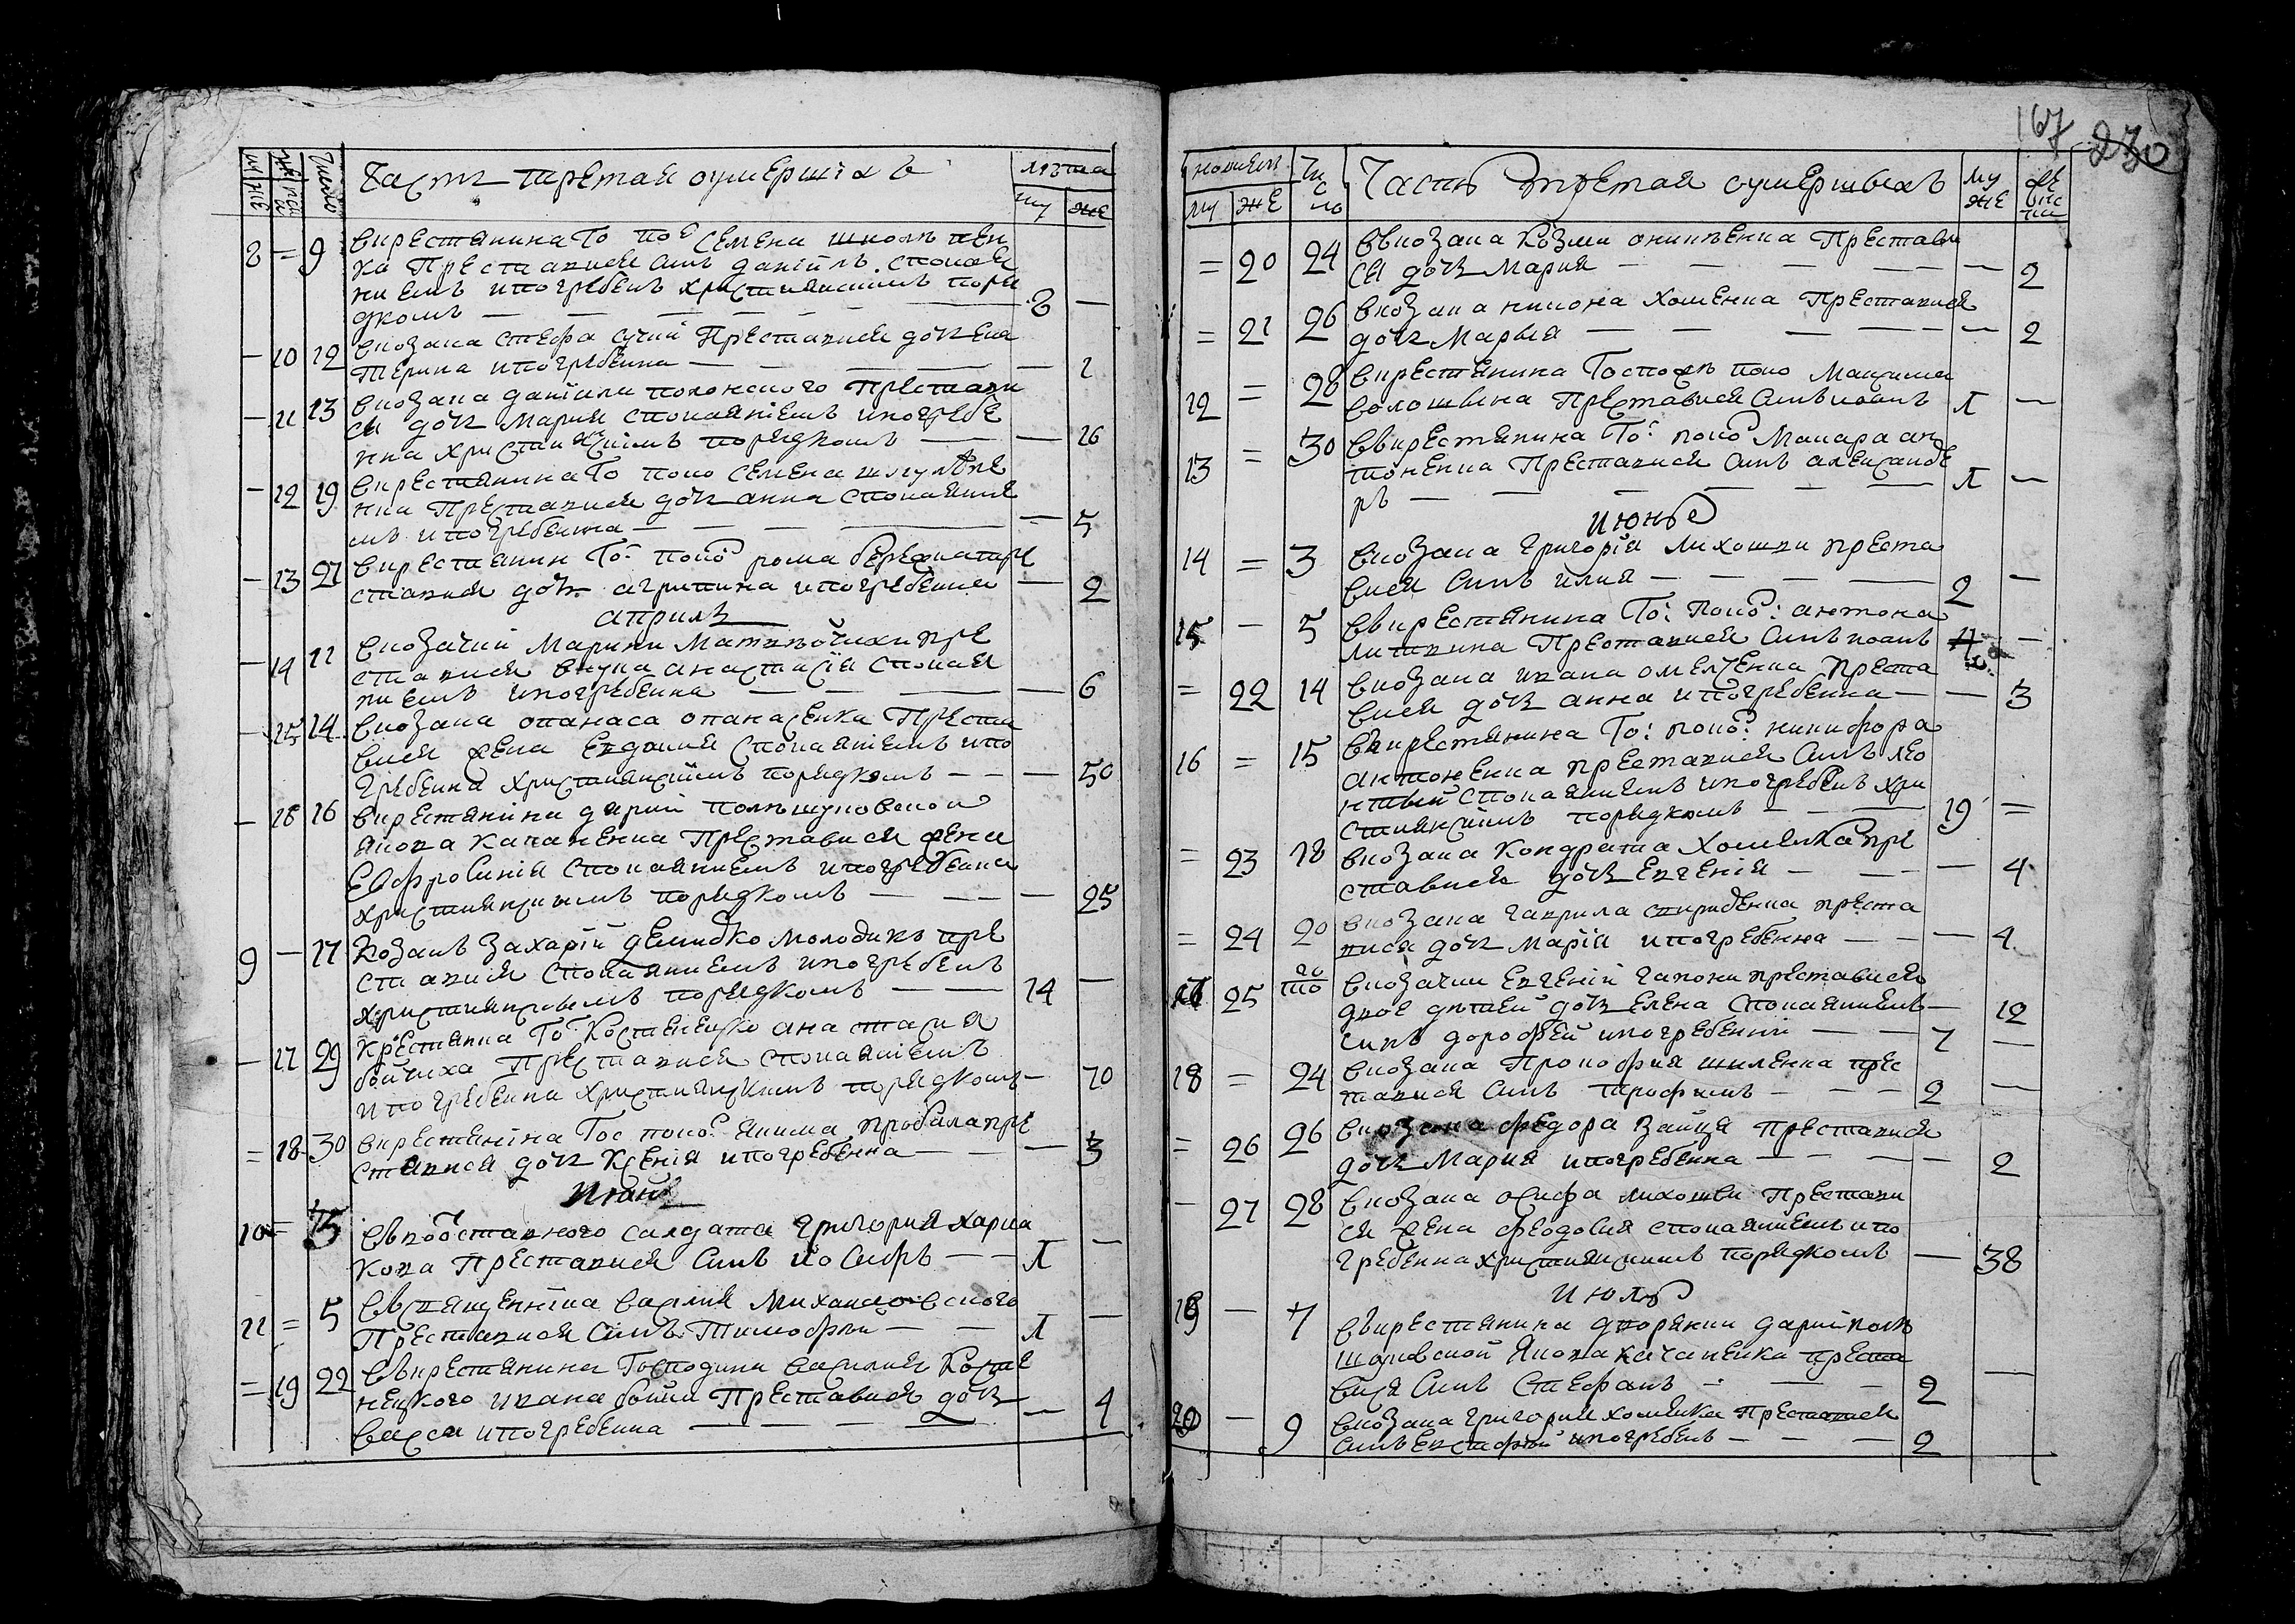 167 230
Часть третая оумершіхъ
лѣта
му же
Число
8 = 9 вкрестянина Го по Семена
ка Преставися Сынъ даніилъ Спокая
ниемъ ипогребенъ християнскимъ поря
дкомъ — — — — 8 —
— 10 12 вкозака Стефа Преставися дочь ека
терина ипогребенна — — — — 1
— 11 13 вкозака даніила полонского Престави
ся дочь Мария Спокаяніемъ ипогребе
нна християнскимъ порядкомъ — — 16
— 12 19 вкрестянина Го подо Семена
нка Преставися дочь анна Спокаяние
мъ ипогребенна — — — — 5
— 13 27 вкрестянин Го: подо рома пре
ставися дочь агрипина ипогребенна — 2
априль
— 14 11 вкозачки Марини пре
ставися внука анастасія Спокая
ниемъ ипогребенна — — — — 6
— 15 14 вкозака опанаса опанасенка Преста
вися жена Евдокия Спокаяніемъ ипо
гребенна християнскимъ порядкомъ — — — 50
— 16 16 вкрестянина дарии
якова качаненка Преставися жена
Евфросиния Спокаяниемъ ипогребенна
християнскимъ порядкомъ — — — 25
9 — 17 козакъ Захарій демидко молодикъ пре
ставися Спокаяниемъ ипогребенъ
християнскимъ порядкомъ — — 14 —
— 17 29 крестянка Го: Костенецко анастасия
бойчиха Преставися Спокаяніемъ
ипогребенна християнскимъ порядкомъ — 70
= 18 30 вкрестянина Гос подо: якима пробала пре
ставися дочь Ксения ипогребенна — — 3
10 = 3 въ отставного салдата григория харча
кова Преставися Сынъ іосифъ — — Л —
11 = 5 въ священника василия Михаиловского
Преставися Сынъ Тимофеи — — Л —
= 19 22 въкрестянина Господина василия Косте
нецкого ивана бойки Преставися дочь
васса ипогребенна — — — — 4
му же Число Часть третая оумершихъ му же
= 20 24 вкозака козми оникиенка Престави
ся дочь Мария — — — — — 2
= 21 26 вкозака никона хоменка Преставися
дочь Марья — — — — — 2
12 = 28 вкрестянина Госпожъ подо Максима
волошина Преставися Сынъ иоанъ Л —
13 = 30 Вкрестянина Го: подо Макара ан
тоненка Преставися Сынъ александе
ръ — — — — — Л —
июнь
14 = 3 вкозака григорія лихошви преста
вися Сынъ илия — — — — 2 —
15 — 5 Вкрестянина Го: подо: антона
литвина Преставися Сынъ иоанъ —
= 22 14 вкозака ивана омелченка преста
вися дочь анна ипогребенна — — 3
16 = 15 Вкрестянина Го: подо: никифора
антоненка преставися Сынъ лео
нтий Спокаяниемъ ипогребенъ хри
стиянскимъ порядкомъ — — 19 =
= 23 18 вкозака кондрата Хоменка пре
ставися дочь Евгения — — — 4
= 24 20 вкозака гаврила спириденка преста
вися дочь Марія ипогребенна — — — 4
17 25 вкозачки Евгении преставися
двое дѣтей дочь Елена Спокаяниемъ — 12
Синъ дорофей ипогребенни — — 7 —
18 = 24 вкозака Прокофия шиленка пре
тавися Синъ трофимъ — — — 2 —
= 26 26 вкозака федора Зайця Преставися
дочь Мария ипогребенна — — — — 2
— 27 28 вкозака осифа лихошви Престави
ся жена феодосия спокаяниемъ ипо
гребенна християнскимъ порядкомъ — 38
июль
19 — 7 вкрестянина дворянки дарии полъ
якова качаненка преста
вися Синъ Стефанъ — — — 2 —
20 — 9 вкозака григория хоменка Преставися
Синъ Евстафий ипогребенъ — — — 2